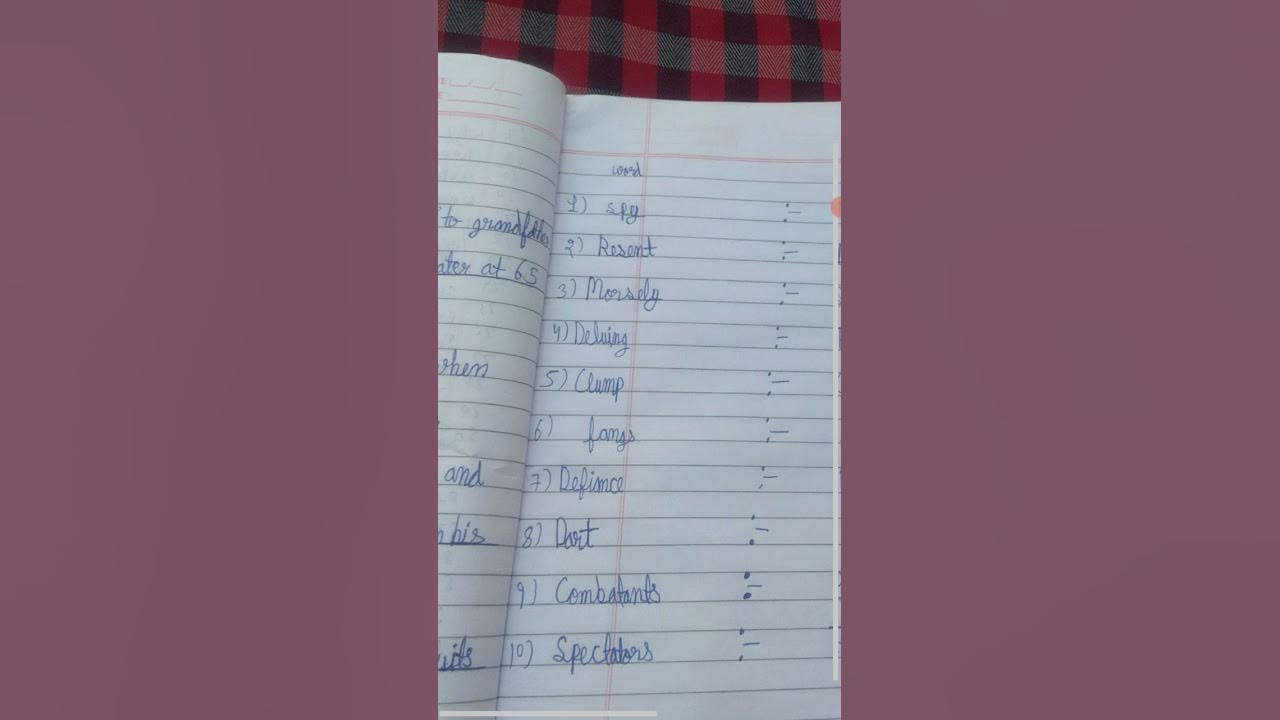 to grandfather
ater at 65
when
and
his
word
1) spy :-
2) Resent :-
3) Morsely :-
4) Deluing :-
5) Clump :-
6) fangs :-
7) Defimce :-
8) Dart :-
9) Combatants :-
10) Spectators :-